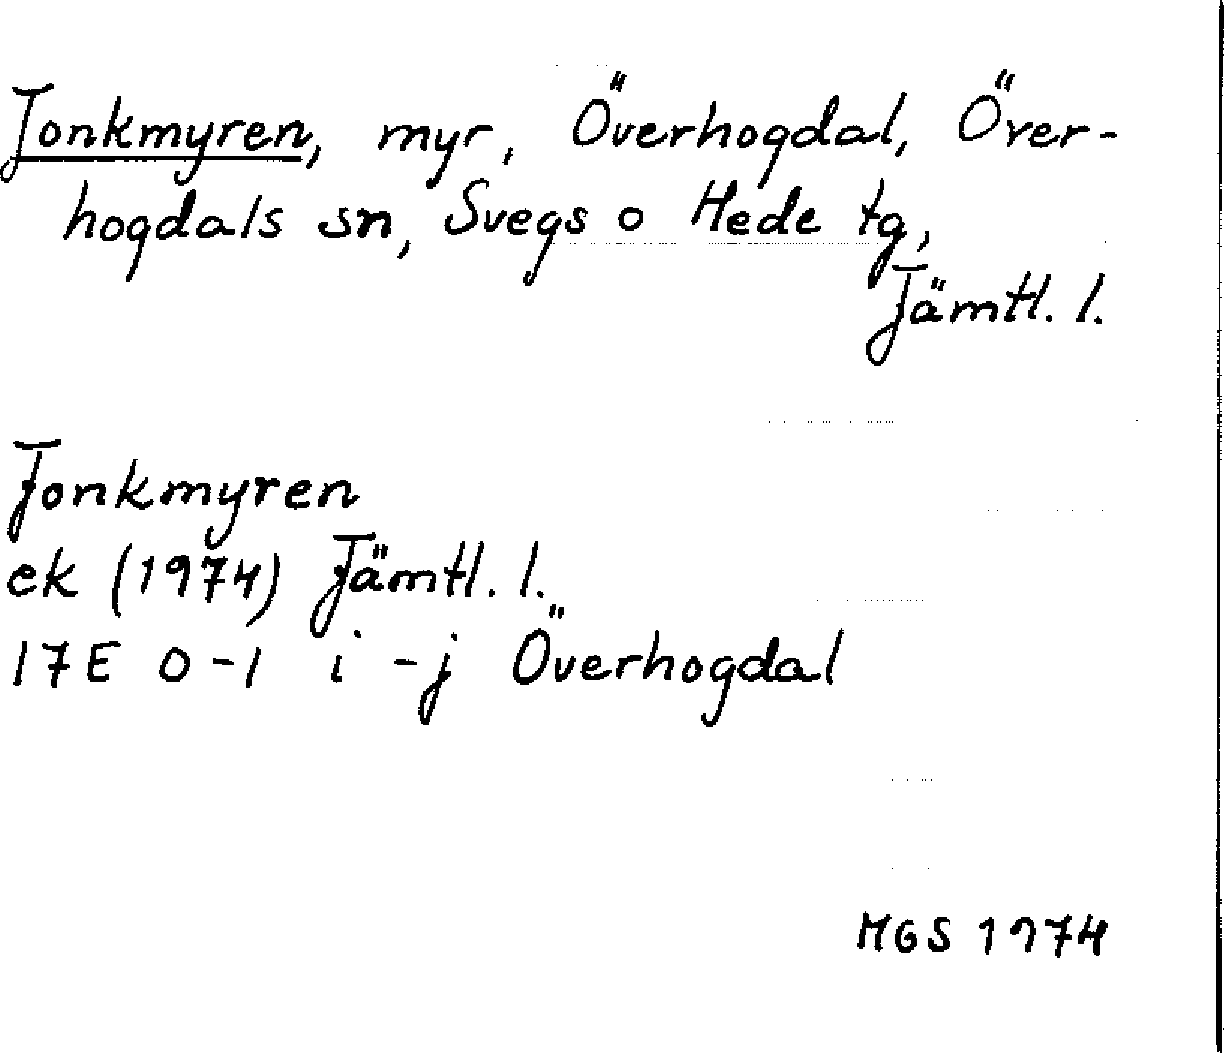 Jonkmyren, myr, Överhogdal, Över-
hogdals sn, Svegs o Hede tg,
Jämtl. l.
Jonkmyren
ek (1974) Jämtl. l.
17E 0-1 i-j Överhogdal
MGS 1974